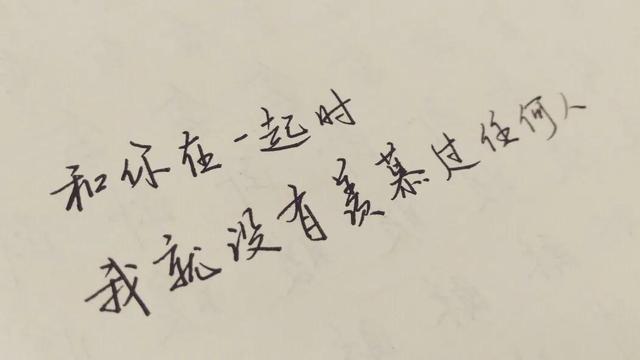 和你在一起时
我就没有羡慕过任何人